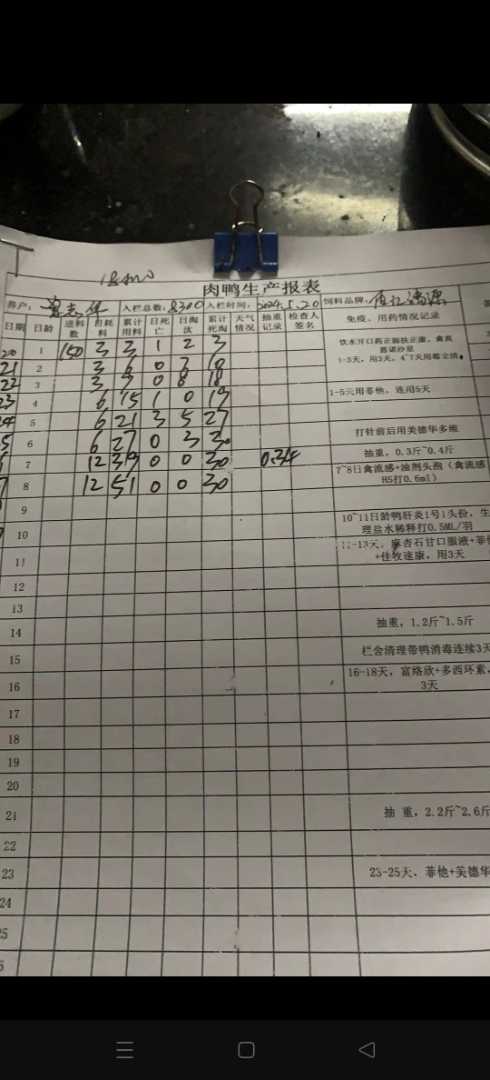 肉鸭生产报表
养户： 入栏总数：8300 入栏时间：2024.5.20 饲料品牌：
日期 日龄 进料数 日耗料 累计用料 日死亡 日淘汰 累计死淘 天气情况 抽重记录 检查人签名 免疫、用药情况记录
20 1 150 3 3 1 2 3
1-3天，用3天，
21 2 3 6 0 7 10
22 3 3 9 0 8 18
23 4 6 15 1 0 19 1-5元用菲他，连用5天
24 5 6 21 3 5 27
5 6 6 27 0 3 30 打针前后用美德华多维
7 12 39 0 0 30 0.34 抽重，0.3斤~0.4斤
7 8 12 51 0 0 30 7~8日禽流感+油剂头孢（禽流感H5打0.6ml）
9
10 10~11日龄鸭肝炎1号1头份，生理盐水稀释打0.5ML/羽
11 麻杏石甘口服液+菲+佳牧速康，用3天
12
13
14 抽重，1.2斤~1.5斤
15 栏舍清理带鸭消毒连续3天
16 16-18天，富络欣+多西环素，3天
17
18
19
20
21 抽 重，2.2斤~2.6斤
22
23 23-25天，菲他+美德华
24
25